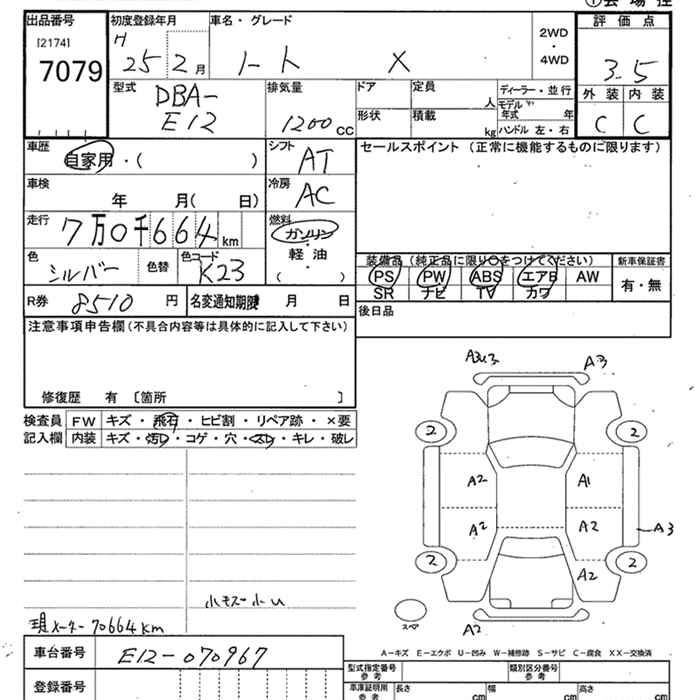 ①会場控
出品番号 初度登録年月 車名・グレード 2WD・4WD 評価点
[2174]
7079 H 25 2月 ノート X 3.5
型式 DBA-E12 排気量 1200 cc ドア 定員 人 ディーラー・並行
形状 積載 kg モデル年式 年 ハンドル 左・右
外装 内装
C C
車歴 自家用・( ) シフト AT セールスポイント (正常に機能するものに限ります)
車検 年 月( 日) 冷房 AC
走行 7万0千664km 燃料 ガソリン・軽油・( )
色 シルバー 色替 色コード K23
装備品(純正品に限り○をつけてください) 新車保証書
PS PW ABS エアB AW 有・無
SR ナビ TV カワ
R券 8510 円 名変通知期限 月 日 後日品
注意事項申告欄(不具合内容等は具体的に記入して下さい)
修復歴 有 〔箇所 〕
検査員 FW キズ・飛石・ヒビ割・リペア跡・×要
記入欄 内装 キズ・汚レ・コゲ・穴・スレ・キレ・破レ
A3 A3
2 2
A2 A1
A2 A2 A3
2 2
A2
スペア A2
現メーター70664km
A-キズ E-エクボ U-凹み W-補修跡 S-サビ C-腐食 XX-交換済
車台番号 E12-070967
型式指定番号 参考 類別区分番号 参考
登録番号 車庫証明用 参考 長さ cm 幅 cm 高さ cm